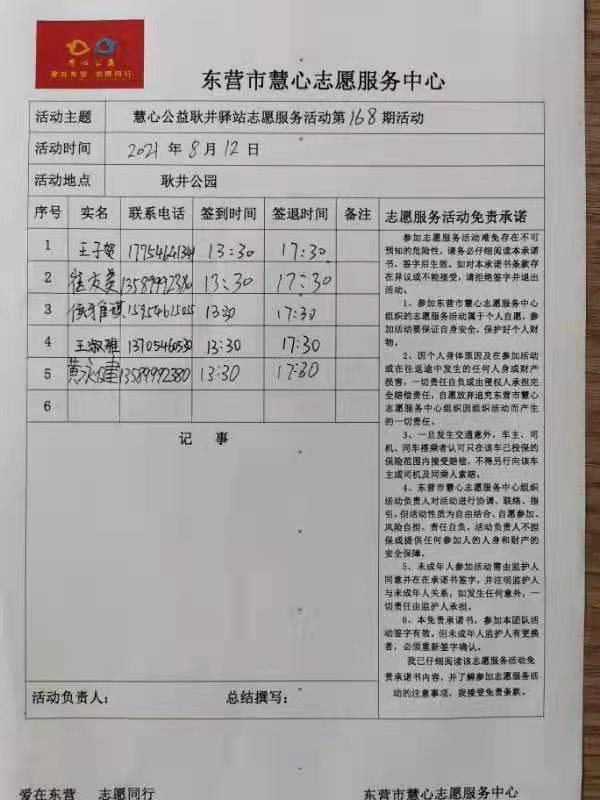 慧心公益
爱在东营 志愿同行
东营市慧心志愿服务中心
活动主题 慧心公益耿井驿站志愿服务活动第168期活动
活动时间 2021年8月12日
活动地点 耿井公园
序号 实名 联系电话 签到时间 签退时间 备注
1 王子贺 13:30 17:30
2 崔友美 13:30 17:30
3 13:30 17:30
4 王淑雅 13705460530 13:30 17:30
5 黄永健 13589992380 13:30 17:30
6
记 事
活动负责人: 总结撰写:
志愿服务活动免责承诺
参加志愿服务活动难免存在不可
预知的危险性,请务必仔细阅读本承诺
书,签字后生效。如对本承诺书条款存
在异议或不能接受,请拒绝签字并退出
活动。
1、参加东营市慧心志愿服务中心
组织的志愿服务活动属于个人自愿,参
加活动要保证自身安全,保护好个人财
物。
2、因个人身体原因及在参加活动
或在往返途中发生的任何人身或财产
损害,一切责任自负或由侵权人承担完
全赔偿责任,自愿放弃追究东营市慧心
志愿服务中心组织因组织活动而产生
的一切责任。
3、一旦发生交通意外,车主、司
机、同车搭乘者认可只在该车已投保的
保险范围内接受赔偿,不得另行向该车
主或司机及同乘人索赔。
4、东营市慧心志愿服务中心组织
活动负责人对活动进行协调、联络、指
引,但活动性质为自由结合、自愿参加、
风险自担、责任自负,活动负责人不担
保或提供任何参加人的人身和财产的
安全保障。
5、未成年人参加活动需由监护人
同意并在在承诺书签字,并注明监护人
与未成年人关系,如发生任何意外,一
切责任由监护人承担。
6、本免责承诺书,参加本团队活
动签字有效。但未成年人监护人有更换
者,必须重新签字确认。
我已仔细阅读该志愿服务活动免
责承诺书内容,并了解参加志愿服务活
动的注意事项,我接受免责条款。
爱在东营 志愿同行 东营市慧心志愿服务中心